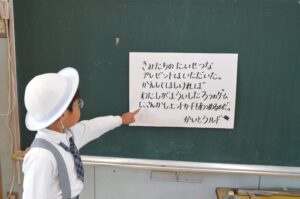 きみたちの たいせつな
プレゼントは いただいた。
かえしてほしければ
わたしが よういした ろつのゲーム
にさんかし、ヒントカードをあつめるのだ。
かいとうルパ